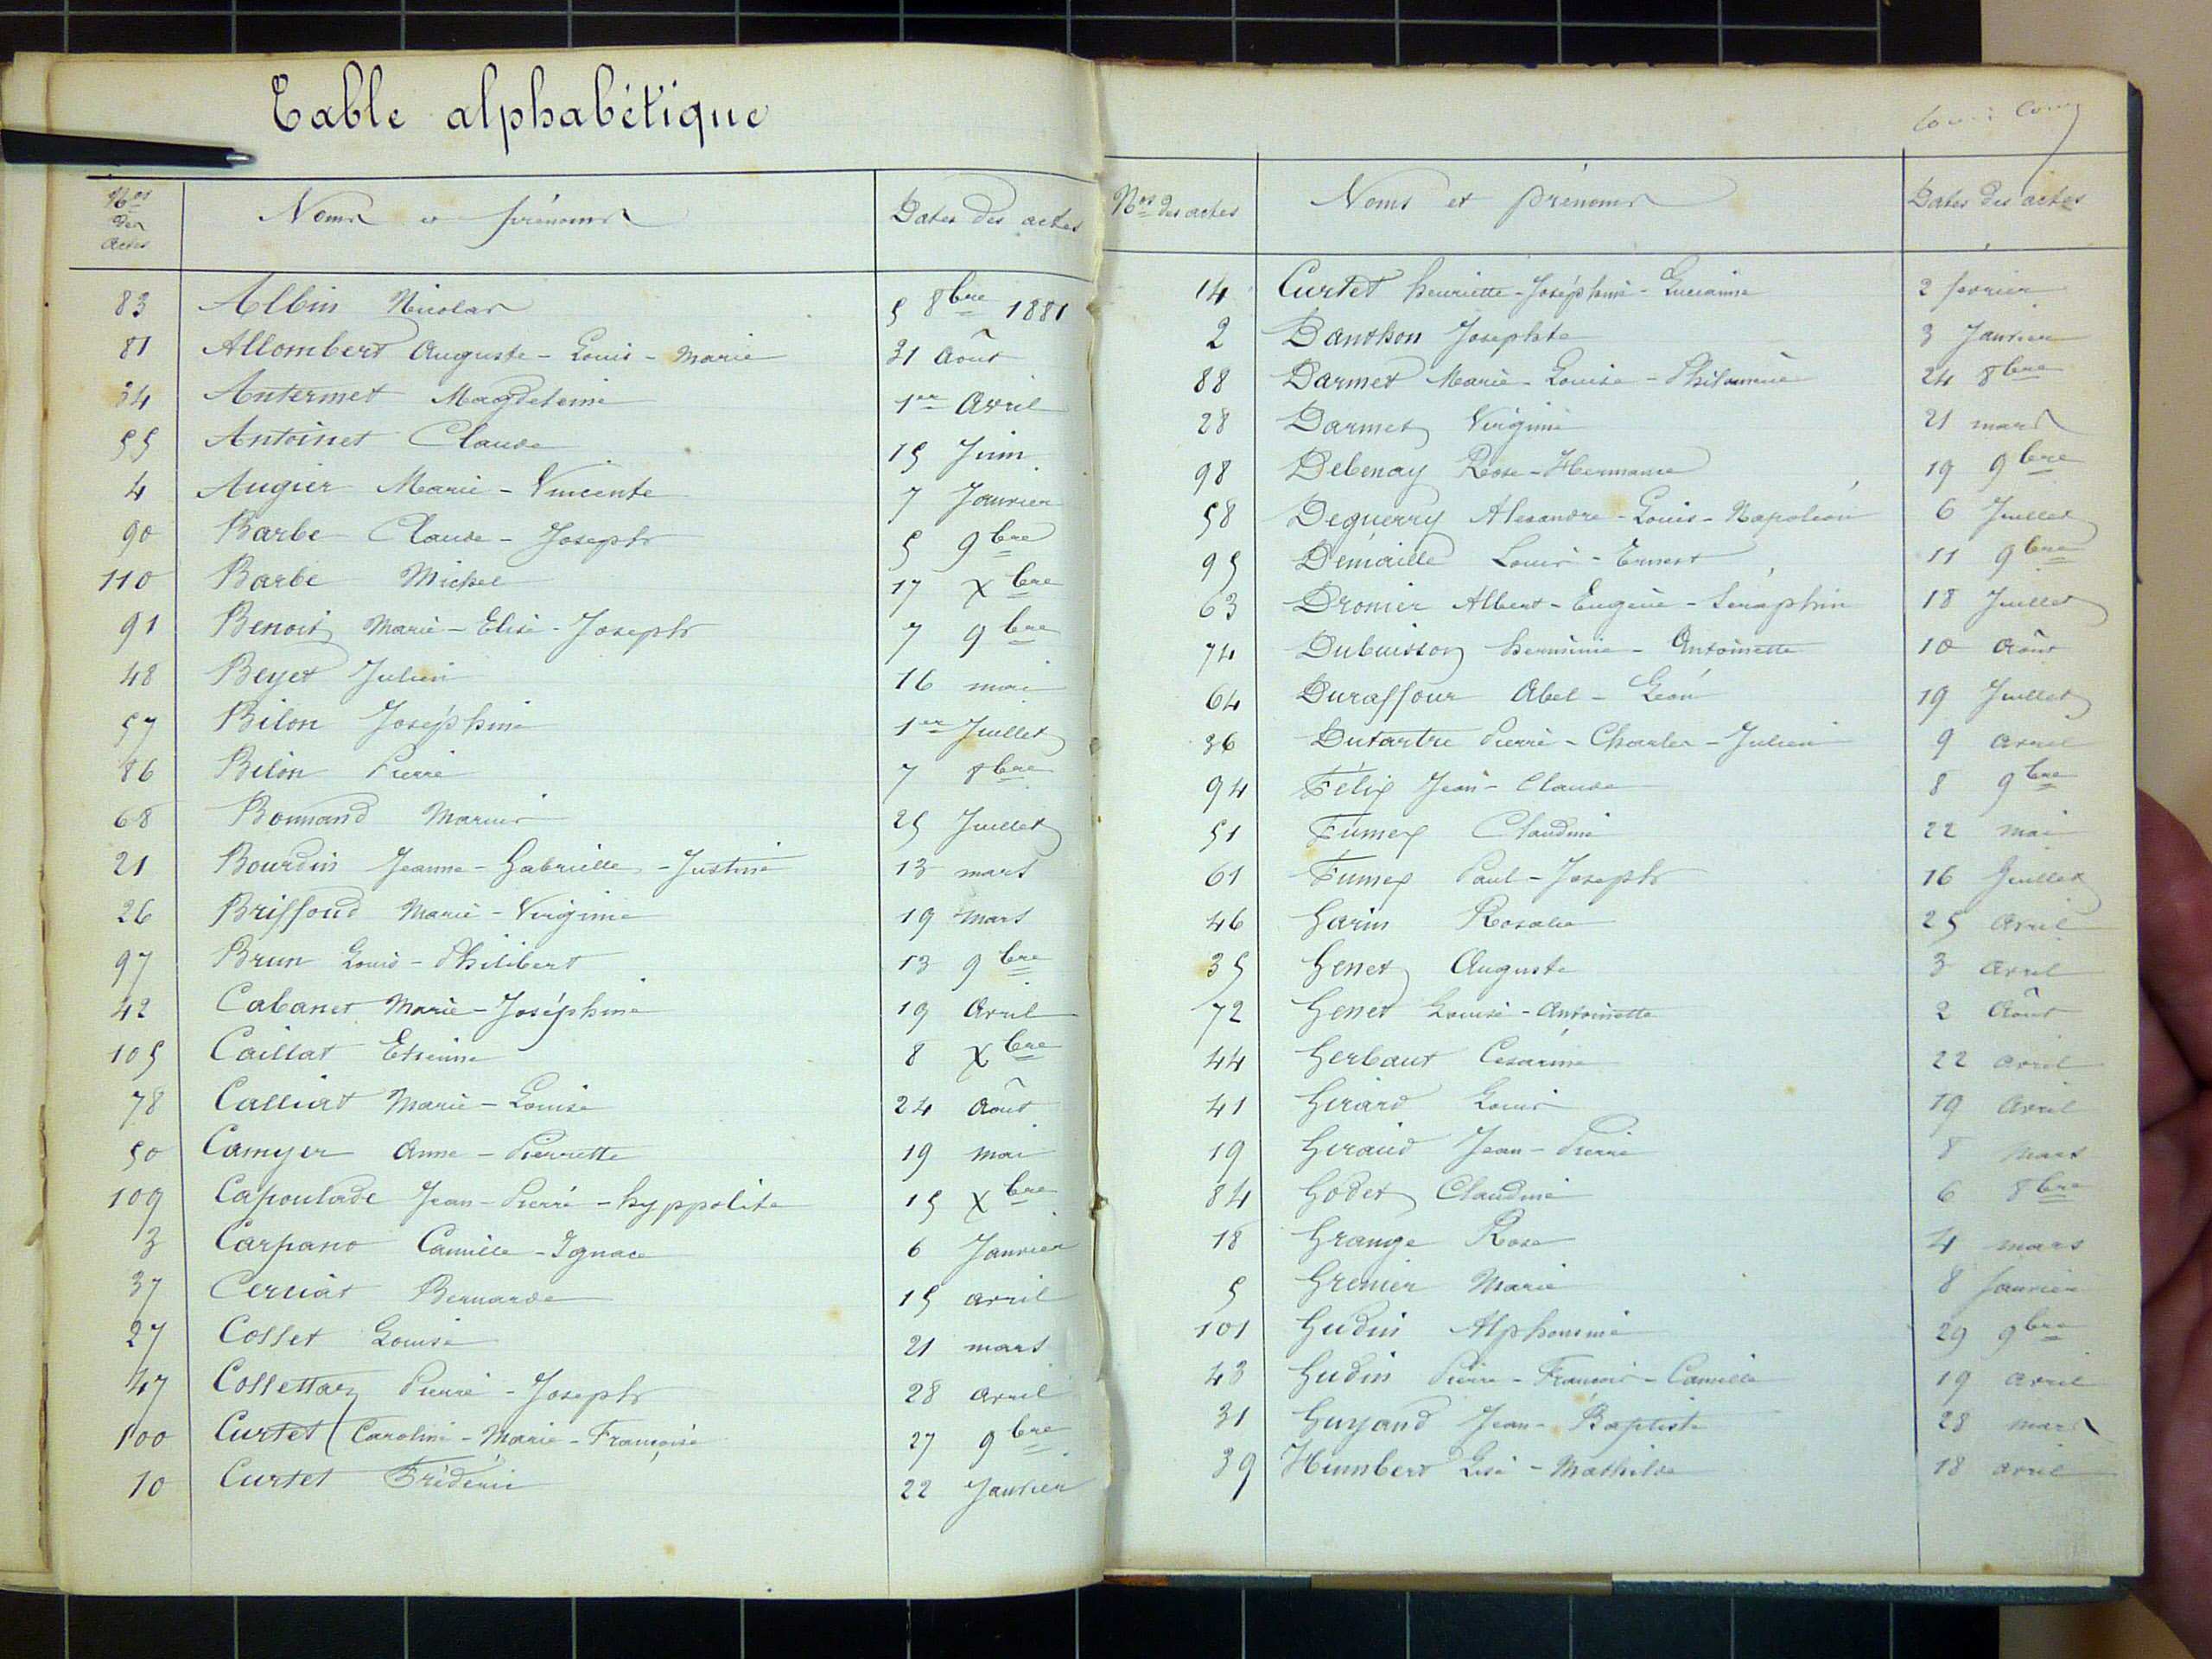 Table alphabétique
Nos des actes Noms et prénoms Dates des actes
83 Albin Nicolas 5 8bre 1881
81 Allombert Auguste-Louis-Marie 31 Août
34 Antermet Magdeleine 1er Avril
55 Antoinet Claude 15 Juin
4 Augier Marie-Vincente 7 Janvier
90 Barbe Claude-Joseph 5 9bre
110 Barbe Michel 17 Xbre
91 Benoit Marie-Elise-Joseph 7 9bre
48 Beyet Julien 16 mai
57 Bilon Joséphine 1er Juillet
86 Bilon Pierre 7 8bre
68 Bonnand Marius 25 Juillet
21 Bourdin Jeanne-Gabrielle-Justine 13 mars
26 Briffoud Marie-Virginie 19 mars
97 Brun Louis-Philibert 13 9bre
42 Cabanet Marie-Joséphine 19 Avril
105 Caillat Etienne 8 Xbre
78 Calliat Marie-Louise 24 Août
50 Camyer Anne-Pierrette 19 mai
109 Capoulade Jean-Pierre-hyppolite 15 Xbre
3 Carpano Camille-Ignace 6 Janvier
37 Cerciat Bernarde 15 avril
27 Cosset Louise 21 mars
47 Collettaz Pierre-Joseph 28 avril
100 Curtet Caroline-Marie-Françoise 27 9bre
10 Curtet Frédéric 22 Janvier
Nos des actes Noms et prénoms Dates des actes
14 Curtet henriette-Joséphine-Lucianne 2 février
2 Danthon Josephte 3 Janvier
88 Darmet Marie-Louise-Philomène 24 8bre
28 Darmet Virginie 21 mars
98 Debenay Rose-Hermance 19 9bre
58 Deguerry Alexandre-Louis-Napoléon 6 Juillet
95 Demaille Louis-Ernest 11 9bre
63 Dronier Albert-Eugène-Séraphin 18 Juillet
74 Dubuisson herminie-Antoinette 10 Août
64 Duraffour Abel-Léon 19 Juillet
36 Dutartre Pierre-Charles-Julien 9 avril
94 Félix Jean-Claude 8 9bre
51 Fumex Claudine 22 mai
61 Fumex Paul-Joseph 16 Juillet
46 Garin Rosalie 25 Avril
35 Genet Auguste 3 Avril
72 Genet Louise-Antoinette 2 Août
44 Gerbaut Cesarine 22 avril
41 Girard Louis 19 Avril
19 Giraud Jean-Pierre 8 Mars
84 Godet Claudine 6 8bre
18 Grange Rose 4 mars
5 Grenier Marie 8 Janvier
101 Gudin Alphonsine 29 9bre
43 Gudin Pierre-François-Camille 19 Avril
31 Guyand Jean-Baptiste 28 mars
39 Humbert Lise-Mathilde 18 avril